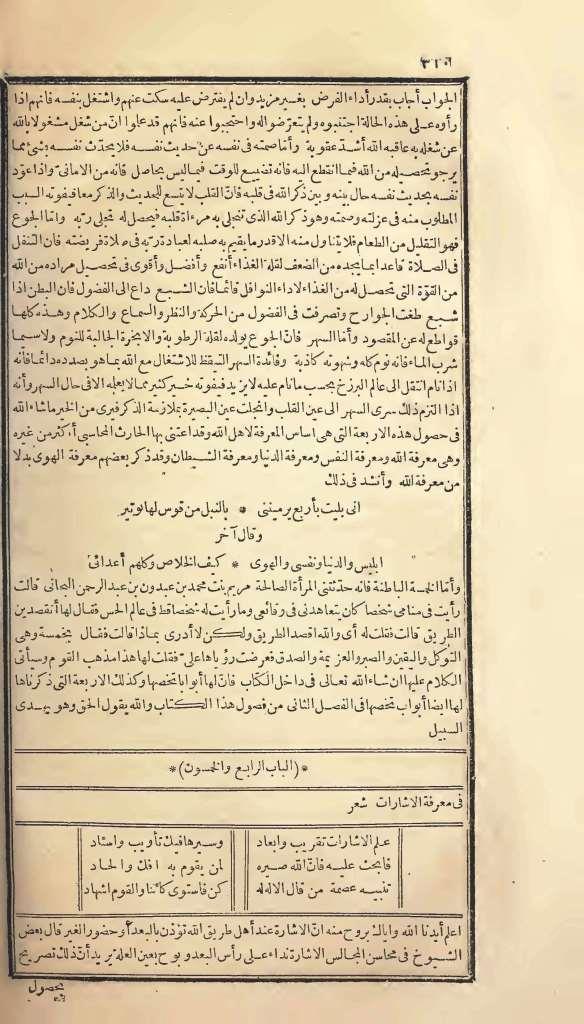 الجواب أجاب بقدر أداء الفرض بغير مزيد وان لم يفترض عليه سكت عنهم واشتغل بنفسه فانهم اذا
رأوه على هذه الحالة اجتنبوه ولم يتعرّضوا له واحتجبوا عنه فانهم قد علموا انّ من شغل مشغولا بالله
عن شغله به عاقبه الله أشدّ عقوبة وأمّا صمته فى نفسه عن حديث نفسه فلا يحدّث نفسه بشئ مما
يرجو تحصيله من الله فيما انقطع اليه فانه تضييع للوقت فيما ليس بحاصل فانه من الامانى واذا عوّد
نفسه بحديث نفسه حال بينه وبين ذكر الله فى قلبه فانّ القلب لا يتسع للحديث والذكر معا فيفوته السبب
المطلوب منه فى عزلته وصمته وهو ذكر الله الذى تتجلى به مرءاة قلبه فيحصل له تجلى ربه وامّا الجوع
فهو التقليل من الطعام فلا يتناول منه الا قدر ما يقيم به صلبه لعبادة ربه فى صلاة فريضته فان التنفل
فى الصلاة قاعدا بما يجده من الضعف لقلة الغذاء أنفع وأفضل وأقوى فى تحصيل مراده من الله
من القوّة التى تحصل له من الغذاء لاداء النوافل قائما فان الشبع داع الى الفضول فان البطن اذا
شبع طغت الجوارح وتصرفت فى الفضول من الحركة والنظر والسماع والكلام وهذه كلها
قواطع له عن المقصود وأمّا السهر فانّ الجوع يولده لقلة الرطوبة والابخرة الجالبة للنوم ولا سيما
شرب الماء فانه نوم كله وشهوته كاذبة وفائدة السهر التيقظ للاشتغال مع الله بما هو بصدده دائما فانه
اذا نام انتقل الى عالم البرزخ بحسب ما نام عليه لا يزيد فيفوته خير كثير مما لا يعلمه الا فى حال السهر وأنه
اذا التزم ذلك سرى السهر الى عين القلب وانجلت عين البصيرة بملازمة الذكر فيرى من الخير ما شاء الله
فى حصول هذه الاربعة التى هى اساس المعرفة لاهل الله وقد اعتنى بها الحارث المحاسبى أكثر من غيره
وهى معرفة الله ومعرفة النفس ومعرفة الدنيا ومعرفة الشيطان وقد ذكر بعضهم معرفة الهوى بدلا
من معرفة الله وأنشد فى ذلك
انى بليت بأربع يرميننى * بالنبل من قوس لها توتير
وقال آخر
ابليس والدنيا ونفسى والهوى * كيف الخلاص وكلهم أعدائى
وأمّا الخمسة الباطنة فانه حدّثتنى المرأة الصالحة مريم بنت محمد بن عبدون بن عبد الرحمن البجائى قالت
رأيت فى منامى شخصا كان يتعاهدنى فى وقائعى وما رأيت له شخصا قط فى عالم الحس فقال لها أتقصدين
الطريق قالت فقلت له أى والله اقصد الطريق ولكن لا أدرى بماذا قالت فقال بخمسة وهى
التوكل واليقين والصبر والعزيمة والصدق فعرضت رؤياها علىّ فقلت لها هذا مذهب القوم وسيأتى
الكلام عليها ان شاء الله تعالى فى داخل الكتاب فانّ لها أبوابا تخصها وكذلك الاربعة التى ذكرناها
لها ايضا أبواب تخصها فى الفصل الثانى من فصول هذا الكتاب والله يقول الحق وهو يهدى
السبيل
* (الباب الرابع والخمسون) *
فى معرفة الاشارات شعر
علم الاشارات تقريب وابعاد وسيرها فيك تأويب واسئاد
فابحث عليه فانّ الله صيره لمن يقوم به افك والحاد
تنبيه عصمة من قال الاله له كن فاستوى كائنا والقوم اشهاد
اعلم أيدنا الله واياك بروح منه انّ الاشارة عند أهل طريق الله تؤذن بالبعد أو حضور الغير قال بعض
الشيوخ فى محاسن المجالس الاشارة نداء على رأس البعد وبوح بعين العلة يريد أنّ ذلك تصريح
بحصول